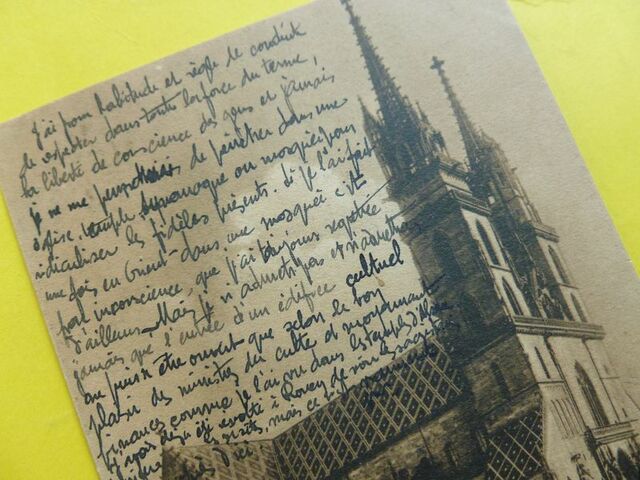 J'ai pour habitude et règle de conduite
de respecter dans toute la force du terme,
la liberté de conscience des gens et jamais
je ne me permettrais de pénétrer dans une
église, temple, synanogue ou mosquée pour
ridiculiser les fidèles présents. Si je l'ai fait
une fois en dans une mosquée c'est
par inconscience, que j'ai toujours regrettée
d'ailleurs - Mais je n'admets pas et n'admettrai
jamais que l'entrée d'un édifice cultuel
ne puisse être ouvert que selon le bon
plaisir des ministres du culte et moyennant
finances comme je l'ai vu dans les temples d'
déjà été révolté à Rouen de voir les
visites, mais ce